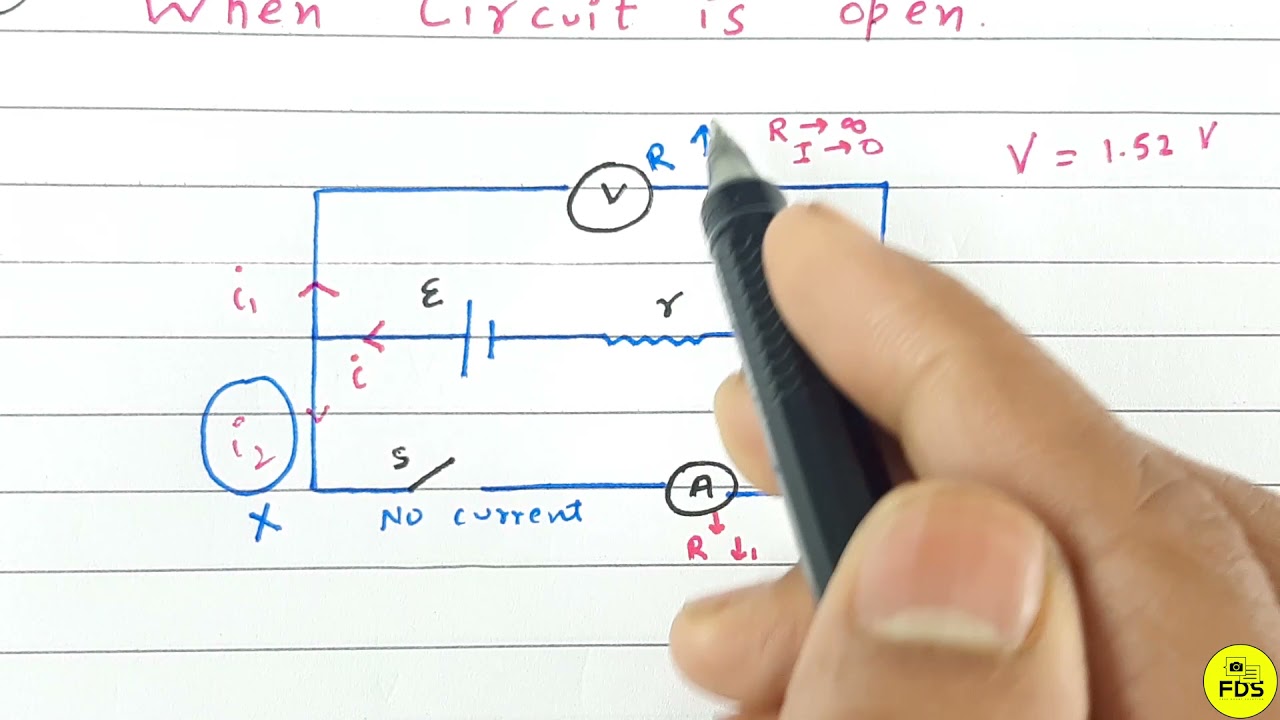 When Circuit is open.
R → ∞
R ↑ I → 0
V = 1.52 V
V
i₁
ε
r
i
i₂
S
A
X
NO current
R ↓
FDS